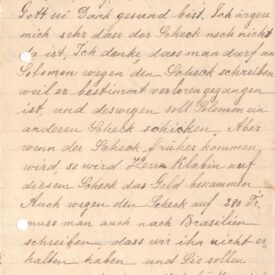 Gott sei Dank gesund bist. Ich ärgere
mich sehr dass der Scheck noch nicht
da ist. Ich denke, dass man darf an
Solomon wegen den Scheck schreiben
weil er bestimmt verloren gegangen
ist, und deswegen soll Slomon ein
anderen Scheck schicken. Aber
wenn der Scheck früher kommen
wird, es wird Herr Klabin auf
diesem Scheck das Geld bekammen.
Auch wegen den Scheck auf 200 Fr.
muss man auch nach Brasilien
schreiben, dass wir ihn nicht er-
halten haben und Sie sollen